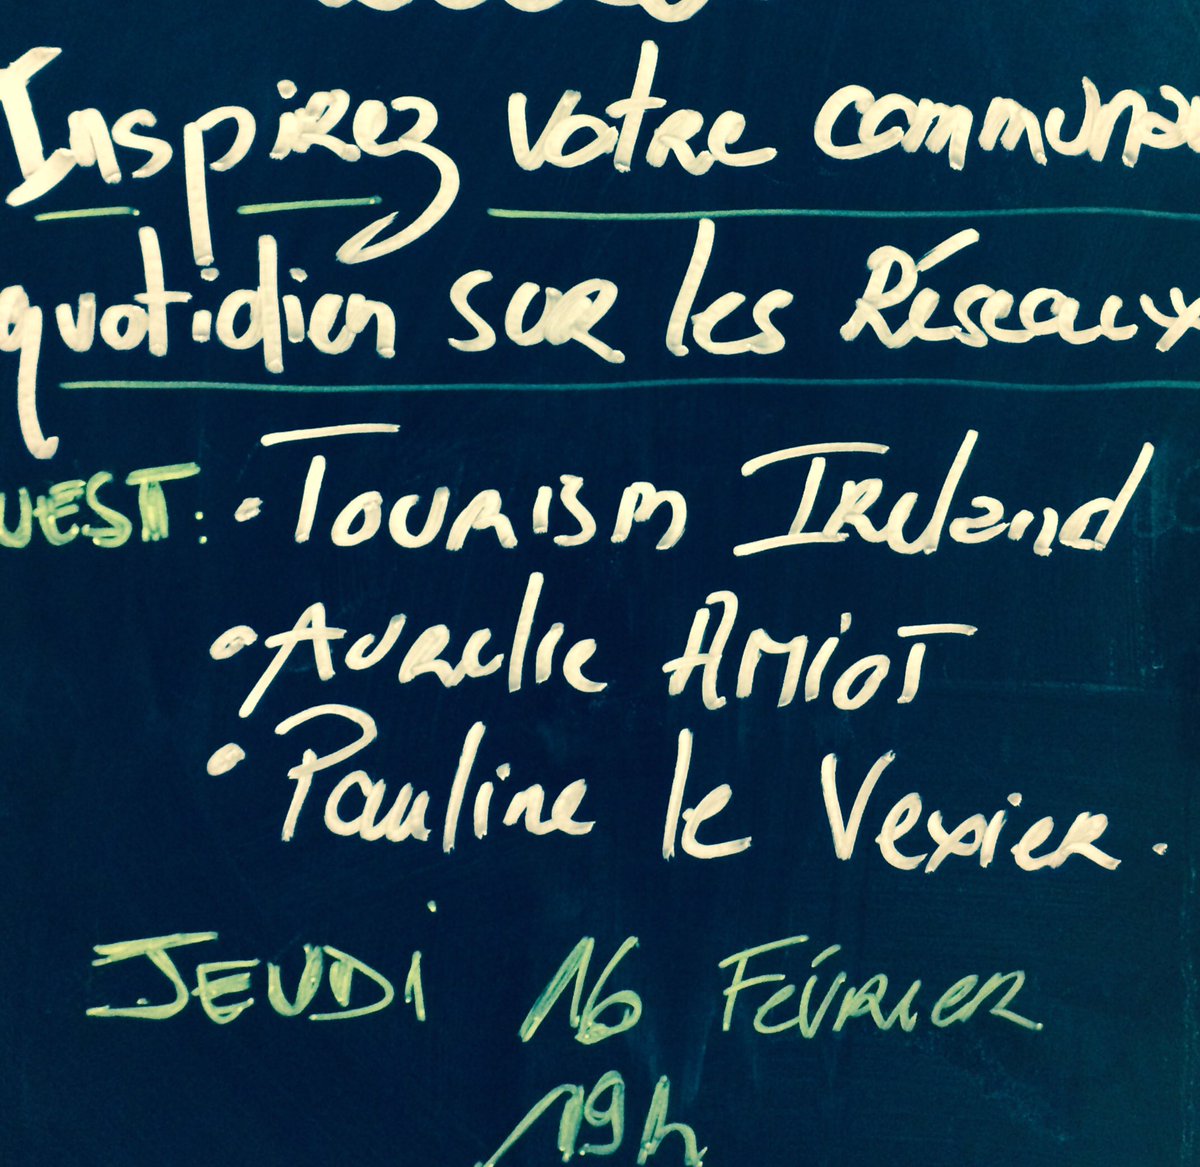 Inspirez votre communau
quotidien sur les Réseaux
UEST: • Tourism Ireland
• Aurelie Amiot
• Pauline le Vexier.
Jeudi 16 Février
19h